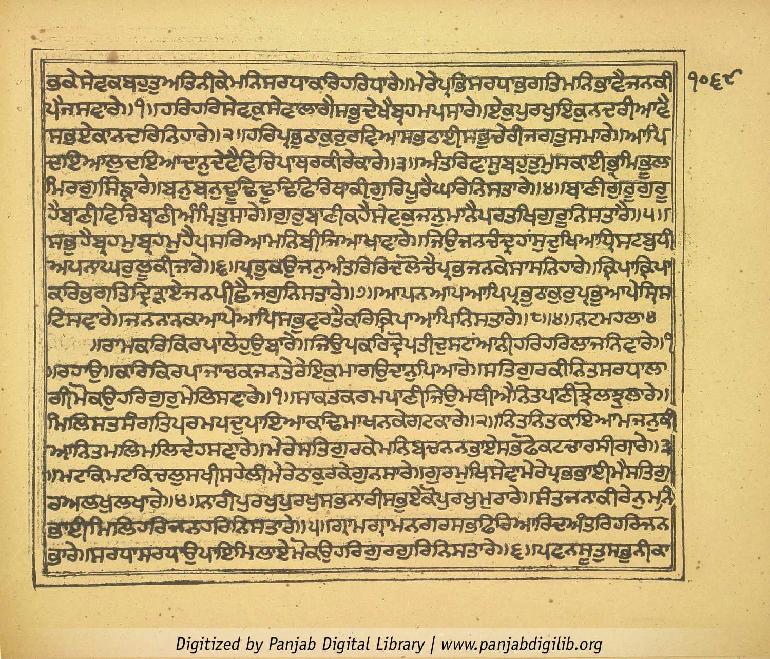 ੧੦੬੯
ਭਕੇਸੇਵਕਬਹੁਤੁਅਤਿਨੀਕੇਮਨਿਸਰਧਾਕਰਿਹਰਿਧਾਰੇ॥ਮੇਰੇਪ੍ਰਭਿਸਰਧਾਭਗਤਿਮਨਿਭਾਵੈਜਨਕੀ
ਪੈਜਸਵਾਰੇ॥੧॥ਹਰਿਹਰਿਸੇਵਕੁਸੇਵਾਲਾਗੈਸਭੁਦੇਖੈਬ੍ਰਹਮਪਸਾਰੇ॥ਏਕੁਪੁਰਖੁਇਕੁਨਦਰੀਆਵੈ
ਸਭਏਕਾਨਦਰਿਨਿਹਾਰੇ॥੨॥ਹਰਿਪ੍ਰਭੁਠਾਕੁਰੁਰਵਿਆਸਭਠਾਈਸਭੁਚੇਰੀਜਗਤੁਸਮਾਰੇ॥ਆਪਿ
ਦਇਆਲੁਦਇਆਦਾਨੁਦੇਵੈਵਿਚਿਪਾਥਰਕੀਰੇਕਾਰੇ॥੩॥ਅੰਤਰਿਵਾਸੁਬਹੁਤੁਮੁਸਕਾਈਭ੍ਰਮਿਭੂਲਾ
ਮਿਰਗੁਸਿੰਙ੍ਹਾਰੇ॥ਬਨੁਬਨੁਢੂਢਿਢੂਢਿਫਿਰਿਥਾਕੀਗੁਰਿਪੂਰੈਘਰਿਨਿਸਤਾਰੇ॥੪॥ਬਾਣੀਗੁਰੂਗੁਰੂ
ਹੈਬਾਣੀਵਿਚਿਬਾਣੀਅੰਮ੍ਰਿਤੁਸਾਰੇ॥ਗੁਰੁਬਾਣੀਕਹੈਸੇਵਕੁਜਨੁਮਾਨੈਪਰਤਖਿਗੁਰੂਨਿਸਤਾਰੇ॥੫॥
ਸਭੁਹੈਬ੍ਰਹਮੁਬ੍ਰਹਮੁਹੈਪਸਰਿਆਮਨਿਬੀਜਿਆਖਾਵਾਰੇ॥ਜਿਉਜਨਚੰਦ੍ਰਹਾਂਸੁਦੁਖਿਆਧ੍ਰਿਸਟਬੁਧੀ
ਅਪਨਾਘਰੁਲੂਕੀਜਾਰੇ॥੬॥ਪ੍ਰਭਕਉਜਨੁਅੰਤਰਿਰਿਦਲੋਚੈਪ੍ਰਭਜਨਕੇਸਾਸਨਿਹਾਰੇ॥ਕ੍ਰਿਪਾਕ੍ਰਿਪਾ
ਕਰਿਭਗਤਿਦ੍ਰਿੜਾਏਜਨਪੀਛੈਜਗੁਨਿਸਤਾਰੇ॥੭॥ਆਪਨਆਪਿਆਪਿਪ੍ਰਭੁਠਾਕੁਰੁਪ੍ਰਭੁਆਪੇਸ੍ਰਿਸ
ਟਿਸਵਾਰੇ॥ਜਨਨਾਨਕਆਪੇਆਪਿਸਭੁਵਰਤੈਕਰਿਕ੍ਰਿਪਾਆਪਿਨਿਸਤਾਰੇ॥੮॥੪॥ਨਟਮਹਲਾ੪
॥ਰਾਮਕਰਿਕਿਰਪਾਲੇਹੁਉਬਾਰੇ॥ਜਿਉਪਕਰਿਦ੍ਰੋਪਤੀਦੁਸਟਾਂਆਨੀਹਰਿਹਰਿਲਾਜਨਿਵਾਰੇ॥੧
॥ਰਹਾਉ॥ਕਰਿਕਿਰਪਾਜਾਚਕਜਨਤੇਰੇਇਕੁਮਾਗਉਦਾਨੁਪਿਆਰੇ॥ਸਤਿਗੁਰਕੀਨਿਤਸਰਧਾਲਾ
ਗੀਮੋਕਉਹਰਿਗੁਰੁਮੇਲਿਸਵਾਰੇ॥੧॥ਸਾਕਤਕਰਮਪਾਣੀਜਿਉਮਥੀਐਨਿਤਪਾਣੀਝੋਲਝੁਲਾਰੇ॥
ਮਿਲਿਸਤਸੰਗਤਿਪਰਮਪਦੁਪਾਇਆਕਢਿਮਾਖਨਕੇਗਟਕਾਰੇ॥੨॥ਨਿਤਨਿਤਕਾਇਆਮਜਨੁਕੀ
ਆਨਿਤਮਲਿਮਲਿਦੇਹਸਵਾਰੇ॥ਮੇਰੇਸਤਿਗੁਰਕੇਮਨਿਬਚਨਨਭਾਏਸਭਫੋਕਟਚਾਰਸੀਗਾਰੇ॥੩
॥ਮਟਕਿਮਟਕਿਚਲੁਸਖੀਸਹੇਲੀਮੇਰੇਠਾਕੁਰਕੇਗੁਨਸਾਰੇ॥ਗੁਰਮੁਖਿਸੇਵਾਮੇਰੇਪ੍ਰਭਭਾਈਮੈਸਤਿਗੁ
ਰਅਲਖੁਲਖਾਰੇ॥੪॥ਨਾਰੀਪੁਰਖੁਪੁਰਖੁਸਭਨਾਰੀਸਭੁਏਕੋਪੁਰਖੁਮੁਰਾਰੇ॥ਸੰਤਜਨਾਕੀਰੇਨੁਮਨਿ
ਭਾਈਮਿਲਿਹਰਿਜਨਹਰਿਨਿਸਤਾਰੇ॥੫॥ਗ੍ਰਾਮਗ੍ਰਾਮਨਗਰਸਭਫਿਰਿਆਰਿਦਅੰਤਰਿਹਰਿਜਨ
ਭਾਰੇ॥ਸਰਧਾਸਰਧਾਉਪਾਇਮਿਲਾਏਮੋਕਉਹਰਿਗੁਰਗੁਰਿਨਿਸਤਾਰੇ॥੬॥ਪਵਨਸੂਤੁਸਭੁਨੀਕਾ
Digitized by Panjab Digital Library | www.panjabdigilib.org